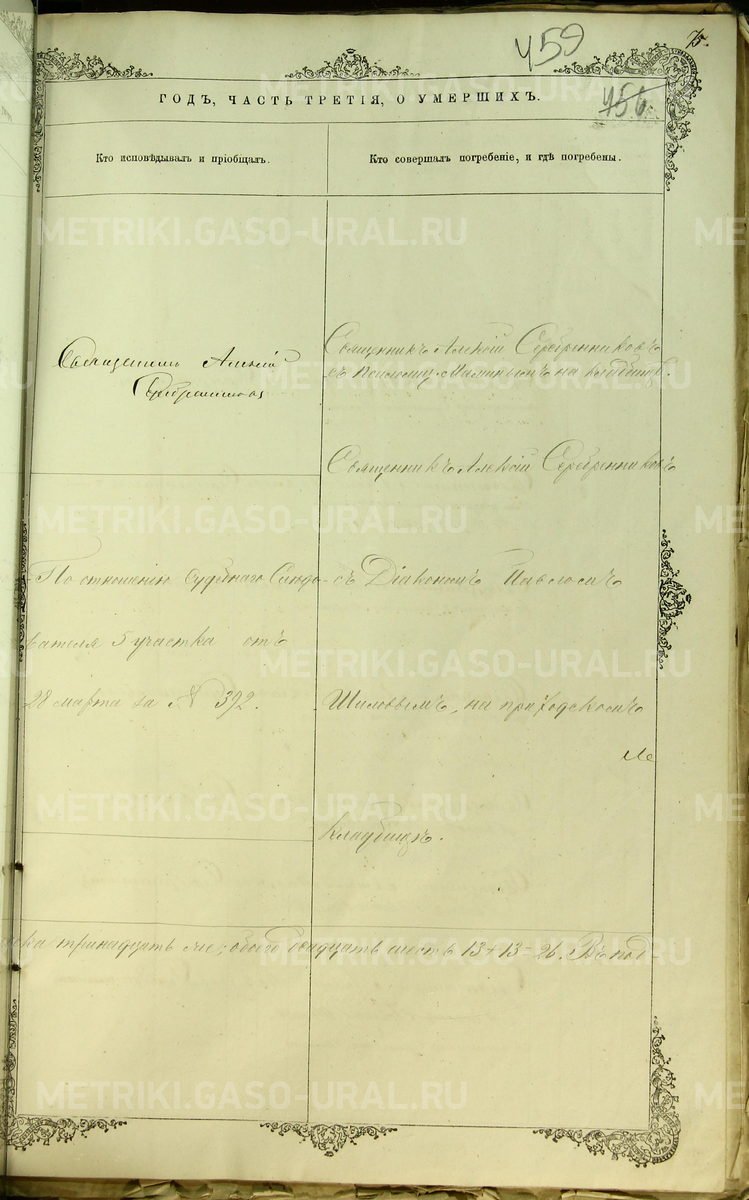 459
75.
456.
ГОДЪ, ЧАСТЬ ТРЕТІЯ, О УМЕРШИХЪ.
Кто исповѣдывалъ и пріобщалъ.
Кто совершалъ погребеніе, и гдѣ погребены.
Священникъ Алексій
Серебренниковъ
Священникъ Алексій Серебренниковъ
съ псаломщ. на кладбищѣ.
Священникъ Алексій Серебренниковъ
По отношенію Судебнаго Слѣдо-
вателя 5 участка отъ
28 марта за № 392.
съ Діакономъ Павломъ
Шиловымъ, на приходскомъ
кладбищѣ.
тринадцать обоего двадцать шесть 13+13=26. Въ под-
METRIKI.GASO-URAL.RU